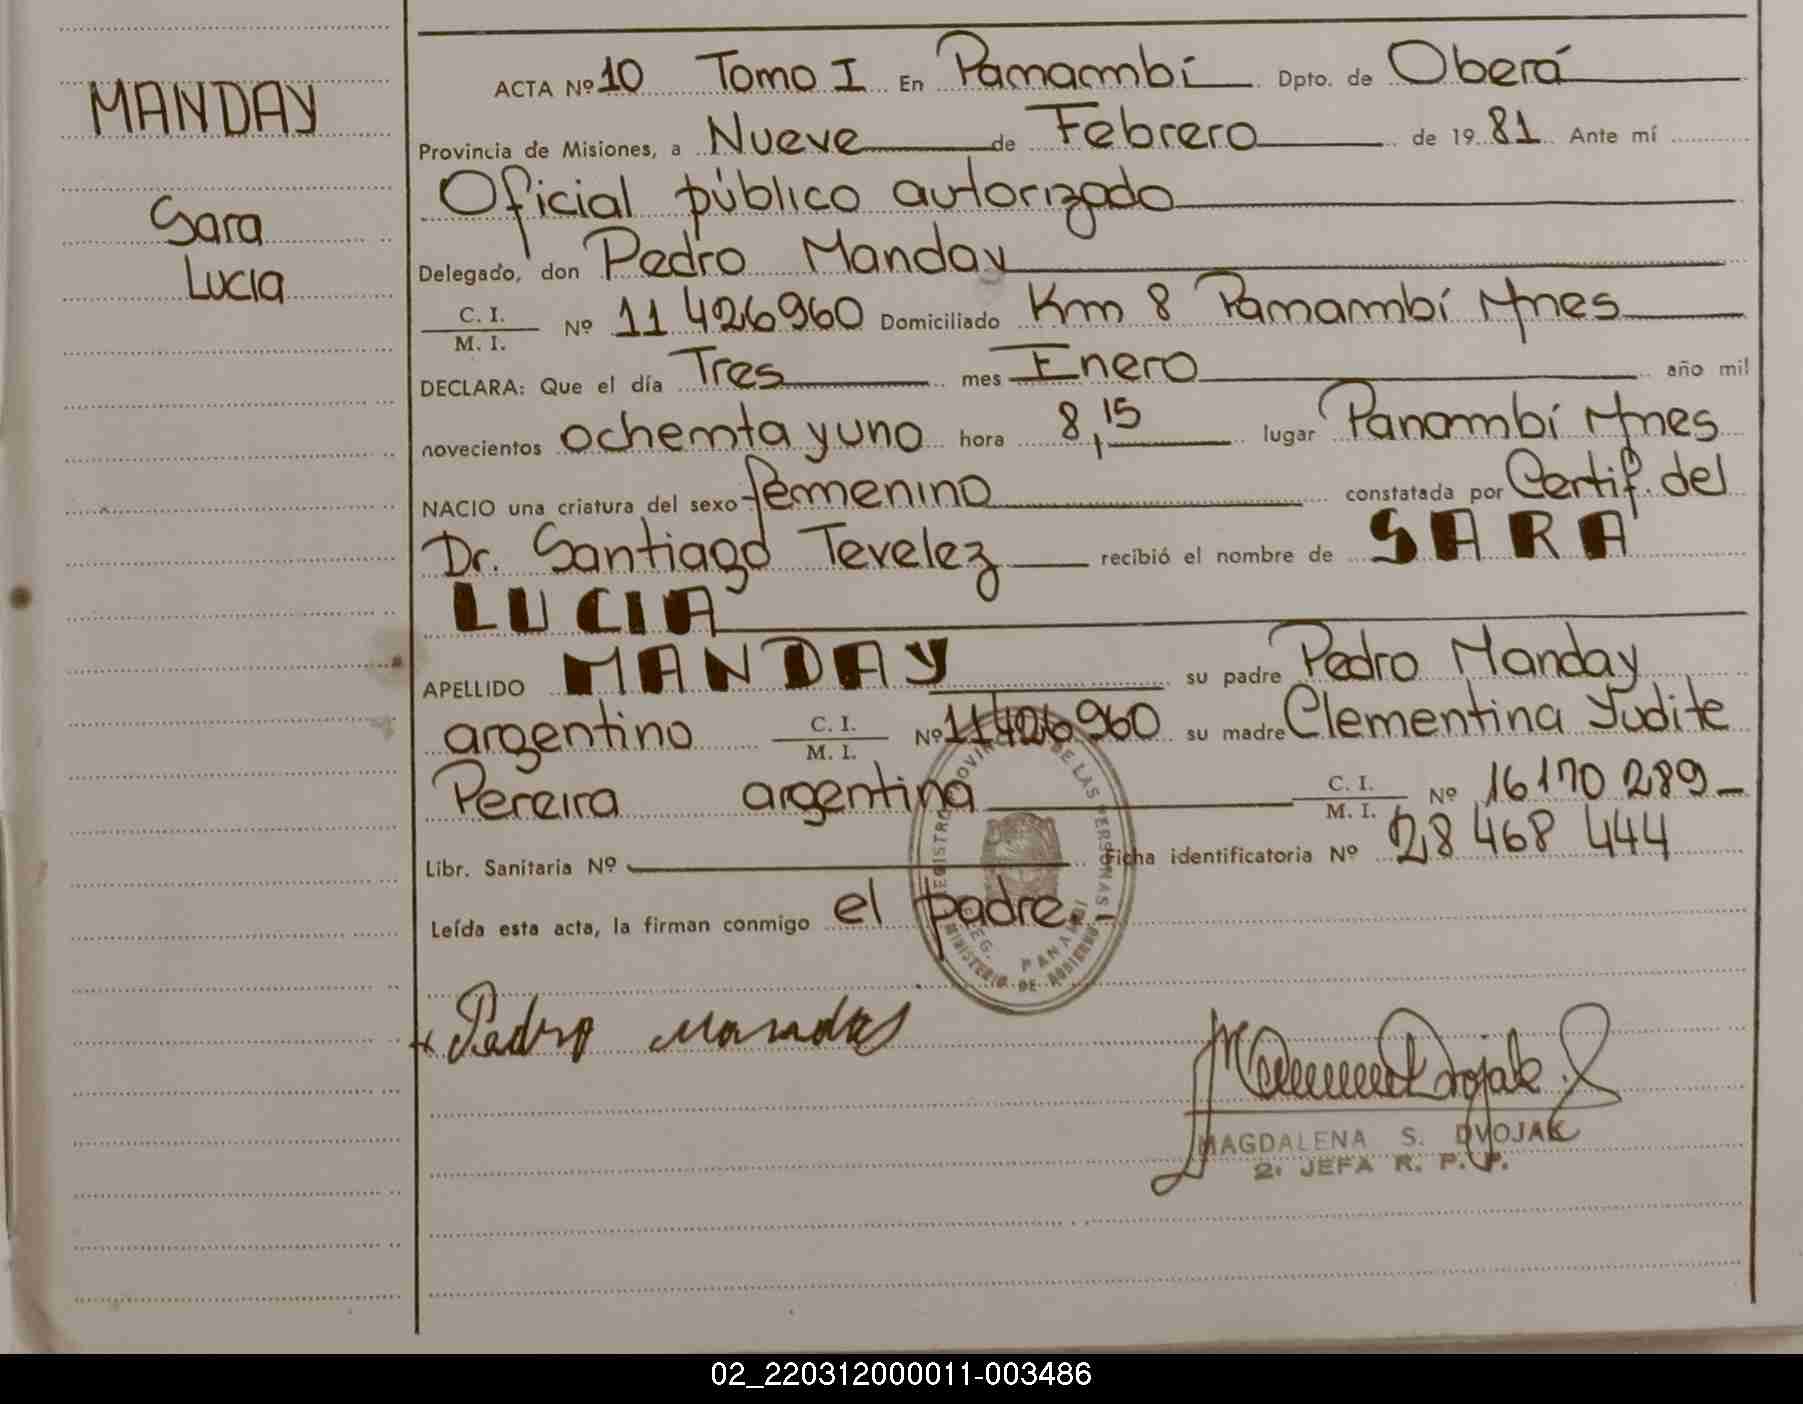 MANDAY
Sara
Lucia
ACTA Nº 10 Tomo I En Panambí Dpto. de Oberá
Provincia de Misiones, a Nueve de Febrero de 19 81 Ante mí
Oficial público autorizado
Delegado, don Pedro Manday
C. I.
M. I. Nº 11 426960 Domiciliado Km 8 Panambí Mnes
DECLARA: Que el día Tres mes Enero año mil
novecientos ochenta y uno hora 8,15 lugar Panambí Mnes
NACIO una criatura del sexo femenino constatada por Certif. del
Dr. Santiago Tevelez recibió el nombre de SARA
LUCIA
APELLIDO MANDAY su padre Pedro Manday
argentino C. I. M. I. Nº 11426960 su madre Clementina Yudite
Pereira argentina C. I. M. I. Nº 16170 289
Libr. Sanitaria Nº Ficha identificatoria Nº 28 468 444
Leída esta acta, la firman conmigo el padre.
REGISTRO PROVINCIAL DE LAS PERSONAS
DELEG. PANAMBI
MINISTERIO DE GOBIERNO
Pedro Manday
M Dvojak
MAGDALENA S. DVOJAK
2ª JEFA R. P. P.
02_220312000011-003486